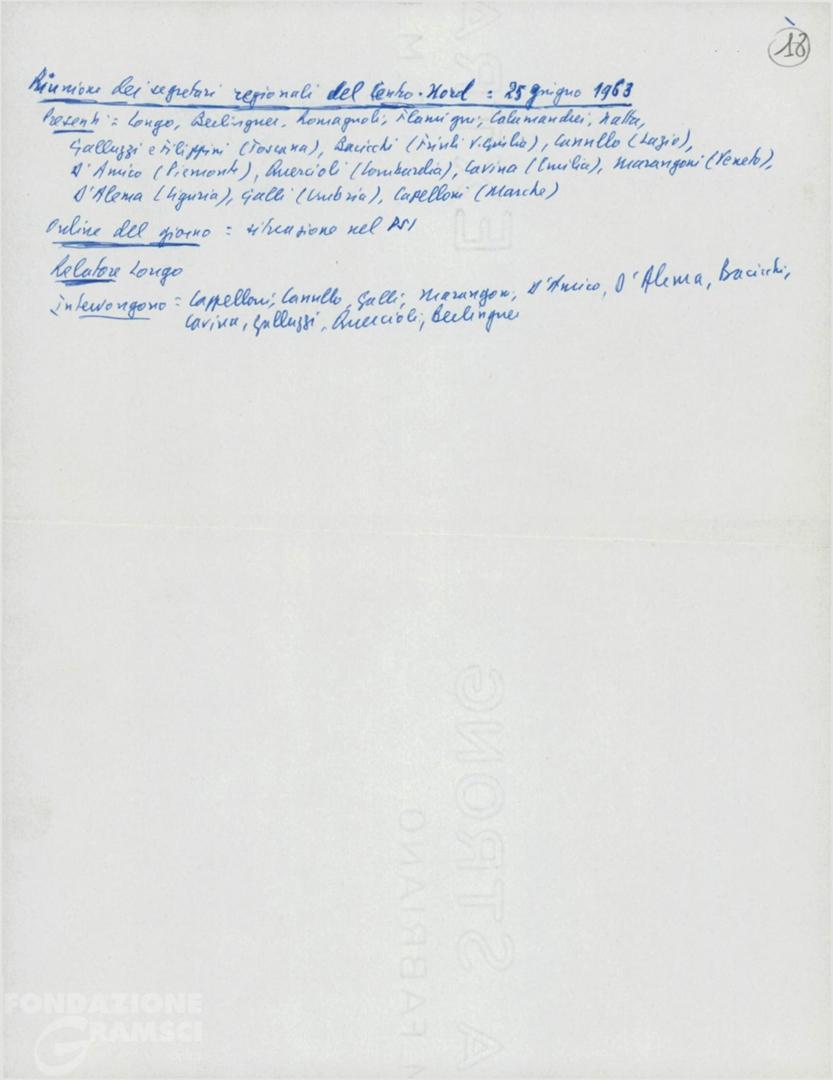 18
Riunione dei segretari regionali del Centro-Nord = 25 giugno 1963
Presenti = Longo, Berlinguer, Romagnoli, Flamigni, Calamandrei, Natta,
Galluzzi e Filippini (Toscana), Bacicchi (Friuli V. Giulia), Cannullo (Lazio),
D'Amico (Piemonte), Quercioli (Lombardia), Cavina (Emilia), Marangoni (Veneto),
D'Alema (Liguria), Galli (Umbria), Capelloni (Marche)
Ordine del giorno = situazione nel PSI
Relatore Longo
Intervongono = Cappelloni, Cannullo, Galli, Marangoni, D'Amico, D'Alema, Bacicchi,
Cavina, Galluzzi, Quercioli, Berlinguer
FABRIANO
A STRONG
FONDAZIONE
GRAMSCI